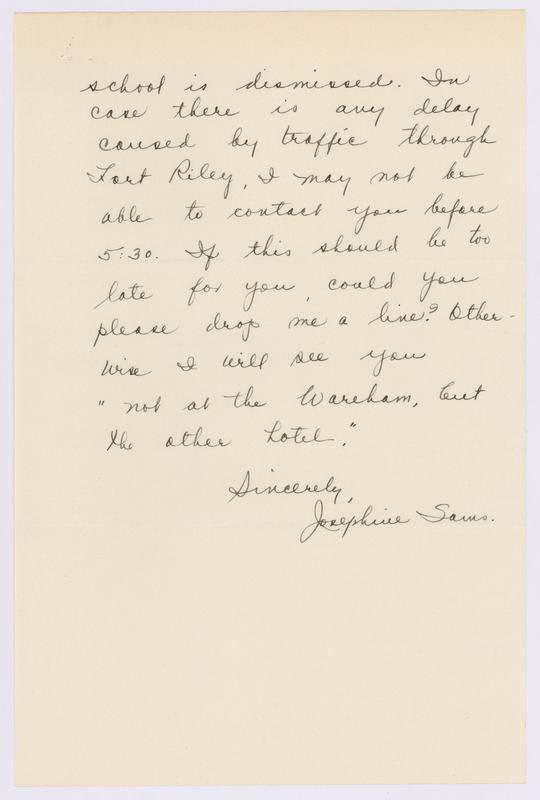 school is dismissed. In
case there is any delay
caused by traffic through
Fort Riley, I may not be
able to contact you before
5:30. If this should be too
late for you, could you
please drop me a line? Other-
wise I will see you
"not at the Wareham, but
the other hotel."
Sincerely,
Josephine Sams.